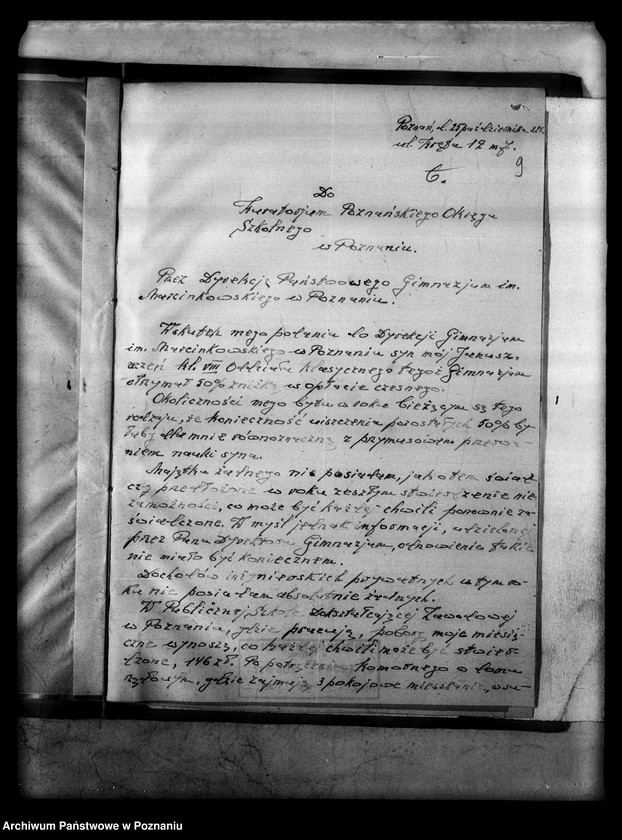 Poznań, d. 25 października
ul. 12 m 7.
9
Do
Kuratorjum Poznańskiego Okręgu
Szkolnego
w Poznaniu.
Przez Dyrekcję Państwowego Gimnazjum im.
Marcinkowskiego w Poznaniu.
Wskutek mego podania do Dyrekcji Gimnazjum
im. Marcinkowskiego w Poznaniu syn mój Janusz,
uczeń kl. VIII Oddziału klasycznego tegoż Gimnazjum
otrzymał 50% zniżkę w opłacie czesnego.
Okoliczności mego bytu w roku bieżącym są tego
rodzaju, że konieczność uiszczenia pozostałych 50% by-
łaby dla mnie równoznaczną z przymusowem przerwa-
niem nauki syna.
Majątku żadnego nie posiadam, jak o tem świad-
czą przedłożone w roku zeszłym stwierdzenie nie-
zamożności, co może być każdej chwili ponownie za-
świadczone. W myśl jednak informacji, udzielonej
przez Pana Dyrektora Gimnazjum, odnowienie takie
nie miało być koniecznem.
Dochodów inżynierskich prywatnych w tym ro-
ku nie posiadam absolutnie żadnych.
W Publicznej Szkole Dokształcającej Zawodowej
w Poznaniu, gdzie pracuję, pobory moje miesię-
czne wynoszą, co każdej chwili może być stwier-
dzone, 146 zł. Po potrąceniu komornego w domu
rządowym, gdzie zajmuję 3 pokojowe mieszkanie, usu-
Archiwum Państwowe w Poznaniu